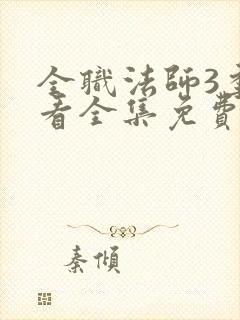 全職法師3季
看全集免費
秦傾